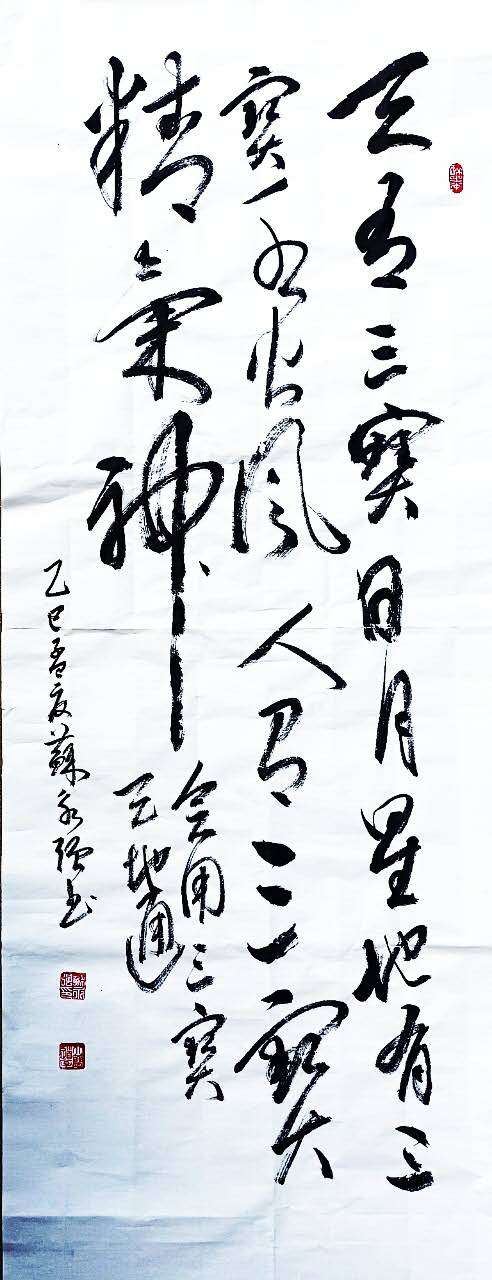 天有三寶日月星地有三
寶水火風人有三寶
精氣神
會用三寶
天地通
乙巳孟夏蘇永強书